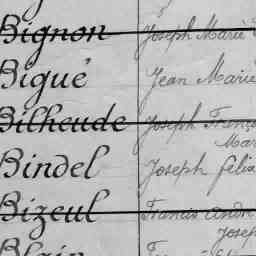 Bignon Joseph Marie
Bigué Jean Marie
Bilheude Joseph Franço
Mar
Bindel Joseph Félix
Bizeul Francis André
Josep
Blain